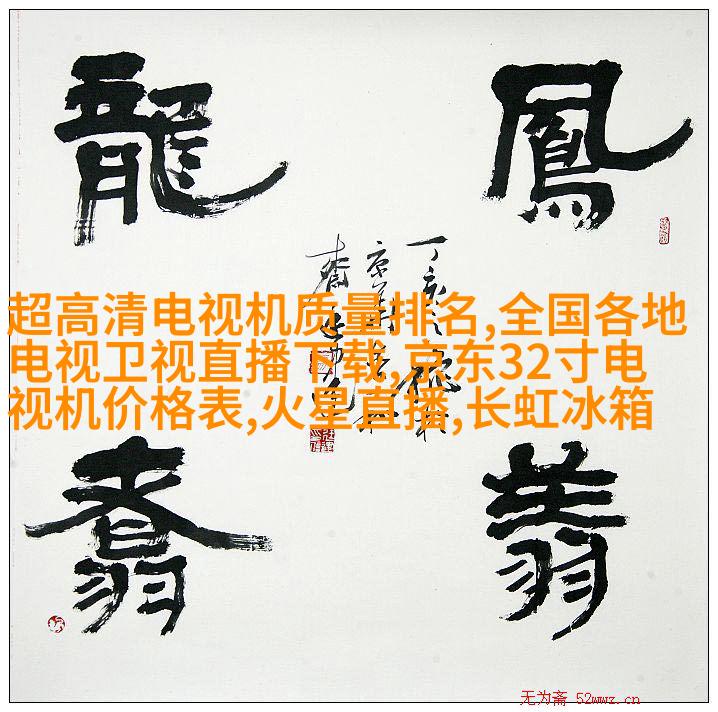 鳳翔
龍翥
丁亥之
超高清电视机质量排名,全国各地
电视卫视直播下载,京东32寸电
视机价格表,火星直播,长虹冰箱
无为斋 52wwz.cn